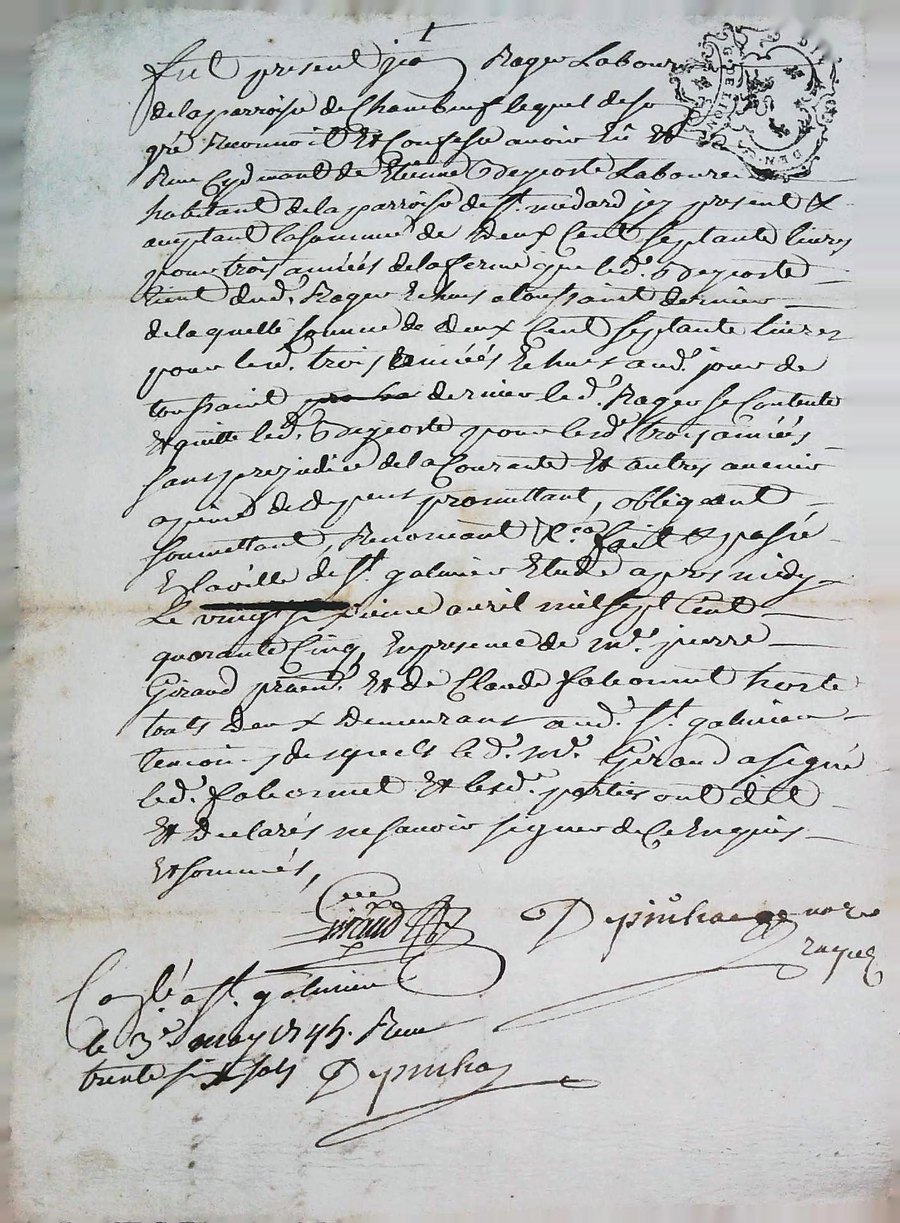 fut present jean Roger Laboureur
de la parroisse de Chambeuf lequel de son
gré Reconnoit Et Confesse avoir Eü Et
Receu Cydevant de Etienne Deporte Laboureur
habitant de la parroisse de St. medard jcy present &
aceptant la somme de deux Cent septante livres
pour trois années de la ferme que led. Deporte
tient dud. Roger Echues a toussaint dernier
de laquelle somme de deux Cent septante livres
pour lesd. trois années Echues aud. jour de
toussaint dernier led. Roger se Contente
Et quitte led. Deporte pour lesd. trois années
sans prejudice de la Courante Et autres avenir
a peine de depens promettant, obligeant
soumettant, Renonceant &ca. fait & passé
En la ville de St. galmier Etude apres midy
Le vingt sixieme avril mil sept Cent
quarante Cinq, En presence de me. pierre
Giraud Et de Claude hoste
touts deux demeurant aud. St. galmier
temoins desquels led. me. Giraud a signé
led. Et lesd. parties ont dit
Et declarés ne savoir signer de ce Enquis
Et sommés,
Giraud Depinhac nore
royal
Conllé a St. galmier
le 3e may 1745. Receu
trente six sols Depinhac